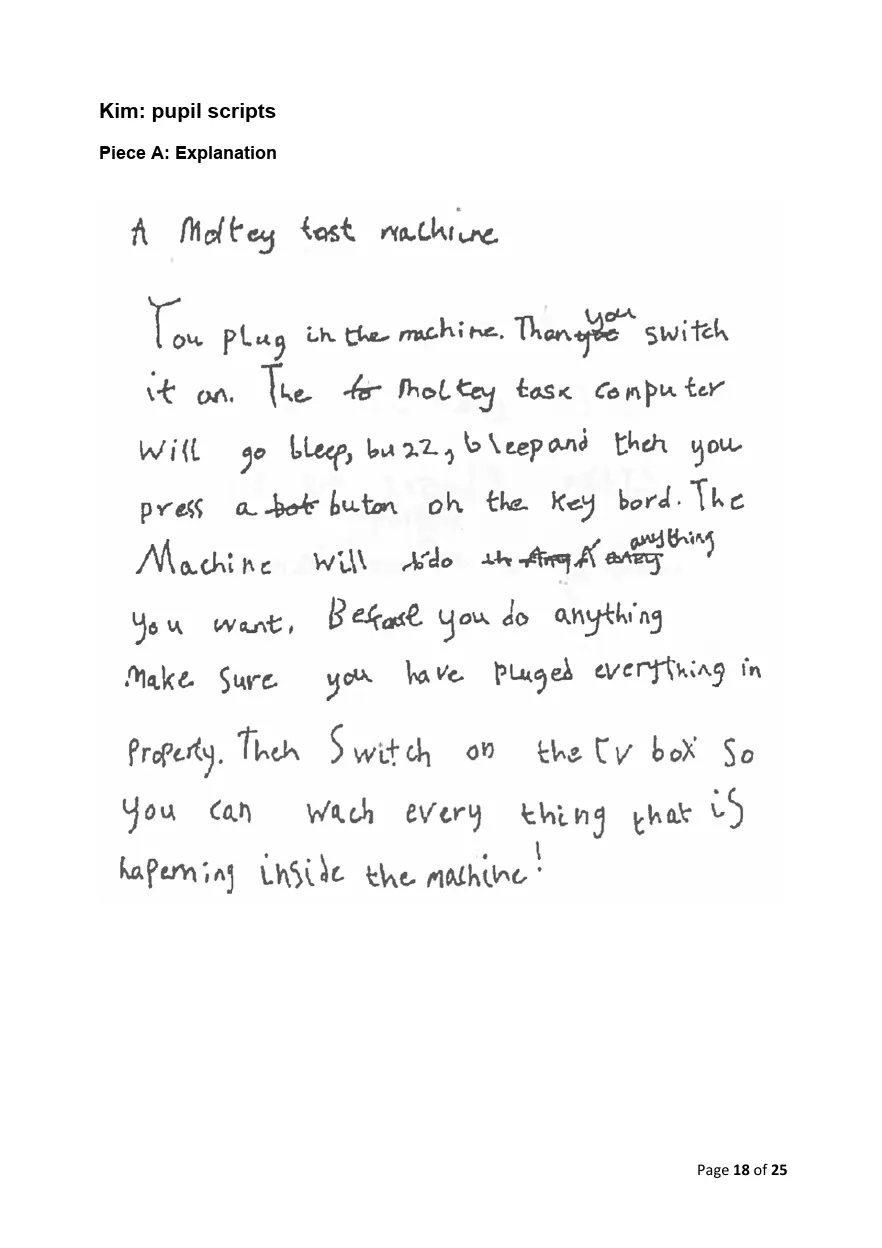 Kim: pupil scripts
Piece A: Explanation
A Moltey tast machine
You plug in the machine. Than you switch
it on. The to Moltey task computer
will go bleep, buzz, bleep and then you
press a bot buton on the key bord. The
Machine will do anything
you want. Before you do anything
Make sure you have pluged everything in
Properly. Then Switch on the tv box so
you can wach every thing that is
hapening inside the machine!
Page 18 of 25